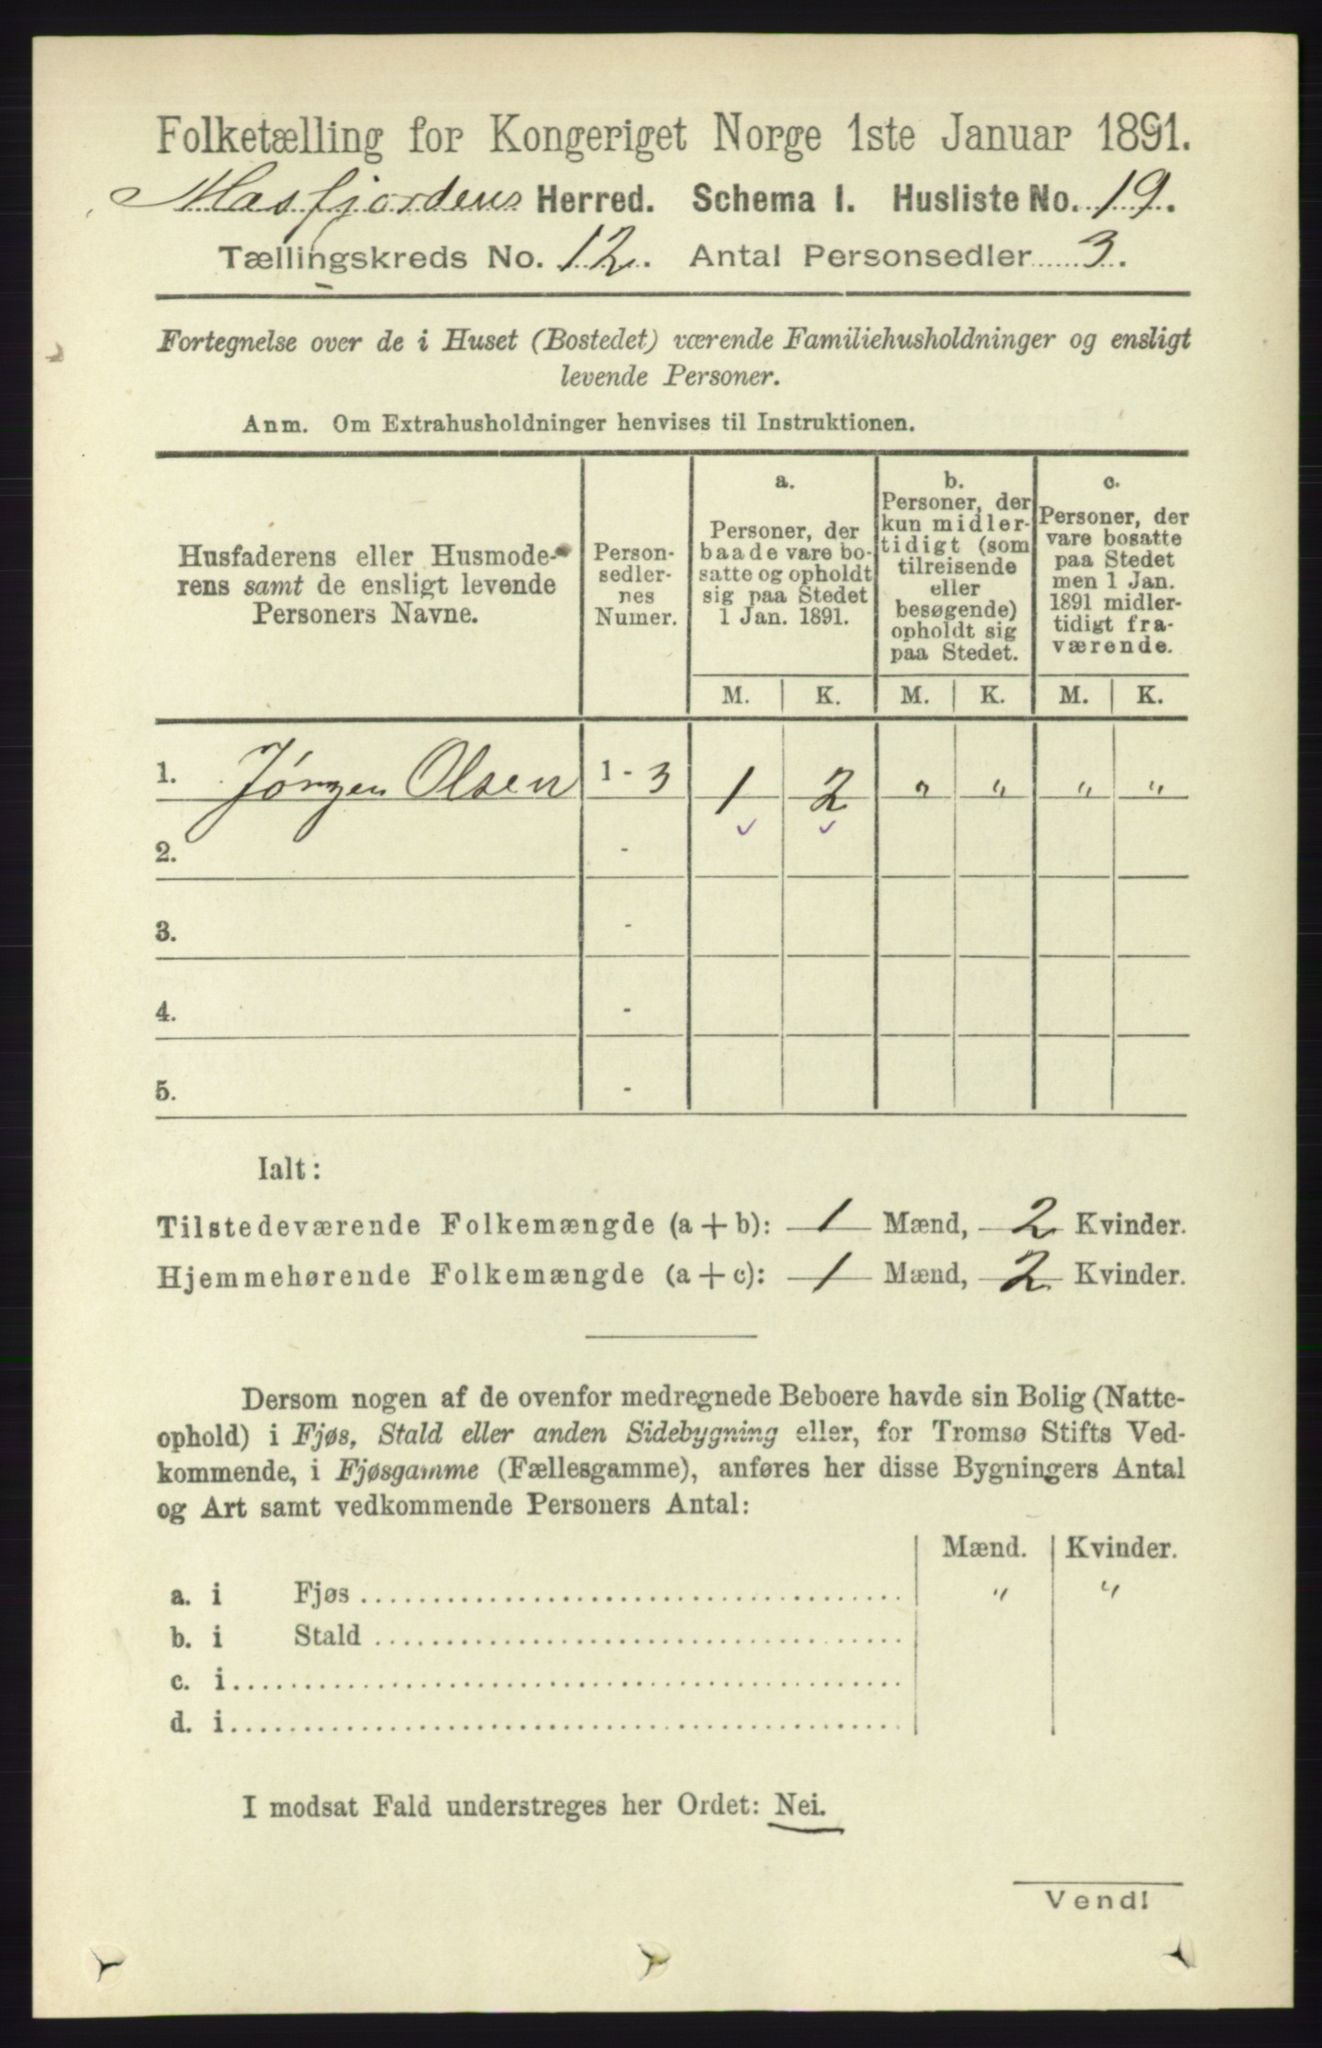 Folketælling for Kongeriget Norge 1ste Januar 1891.
Masfjordens Herred. Schema I. Husliste No. 19.
Tællingskreds No. 12. Antal Personsedler 3.
Fortegnelse over de i Huset (Bostedet) værende Familiehusholdninger og ensligt
levende Personer.
Anm. Om Extrahusholdninger henvises til Instruktionen.
Husfaderens eller Husmode-
rens samt de ensligt levende
Personers Navne.
Person-
sedler-
nes
Numer.
a.
Personer, der
baade vare bo-
satte og opholdt
sig paa Stedet
1 Jan. 1891.
b.
Personer, der
kun midler-
tidigt (som
tilreisende
eller
besøgende)
opholdt sig
paa Stedet.
c.
Personer, der
vare bosatte
paa Stedet
men 1 Jan.
1891 midler-
tidigt fra-
værende.
M. K. M. K. M. K.
1. Jørgen Olsen 1 - 3 1 2 " " " "
2. -
3. -
4. -
5. -
Ialt:
Tilstedeværende Folkemængde (a + b): 1 Mænd, 2 Kvinder.
Hjemmehørende Folkemængde (a + c): 1 Mænd, 2 Kvinder.
Dersom nogen af de ovenfor medregnede Beboere havde sin Bolig (Natte-
ophold) i Fjøs, Stald eller anden Sidebygning eller, for Tromsø Stifts Ved-
kommende, i Fjøsgamme (Fællesgamme), anføres her disse Bygningers Antal
og Art samt vedkommende Personers Antal:
Mænd. Kvinder.
a. i Fjøs " "
b. i Stald
c. i
d. i
I modsat Fald understreges her Ordet: Nei.
Vend!